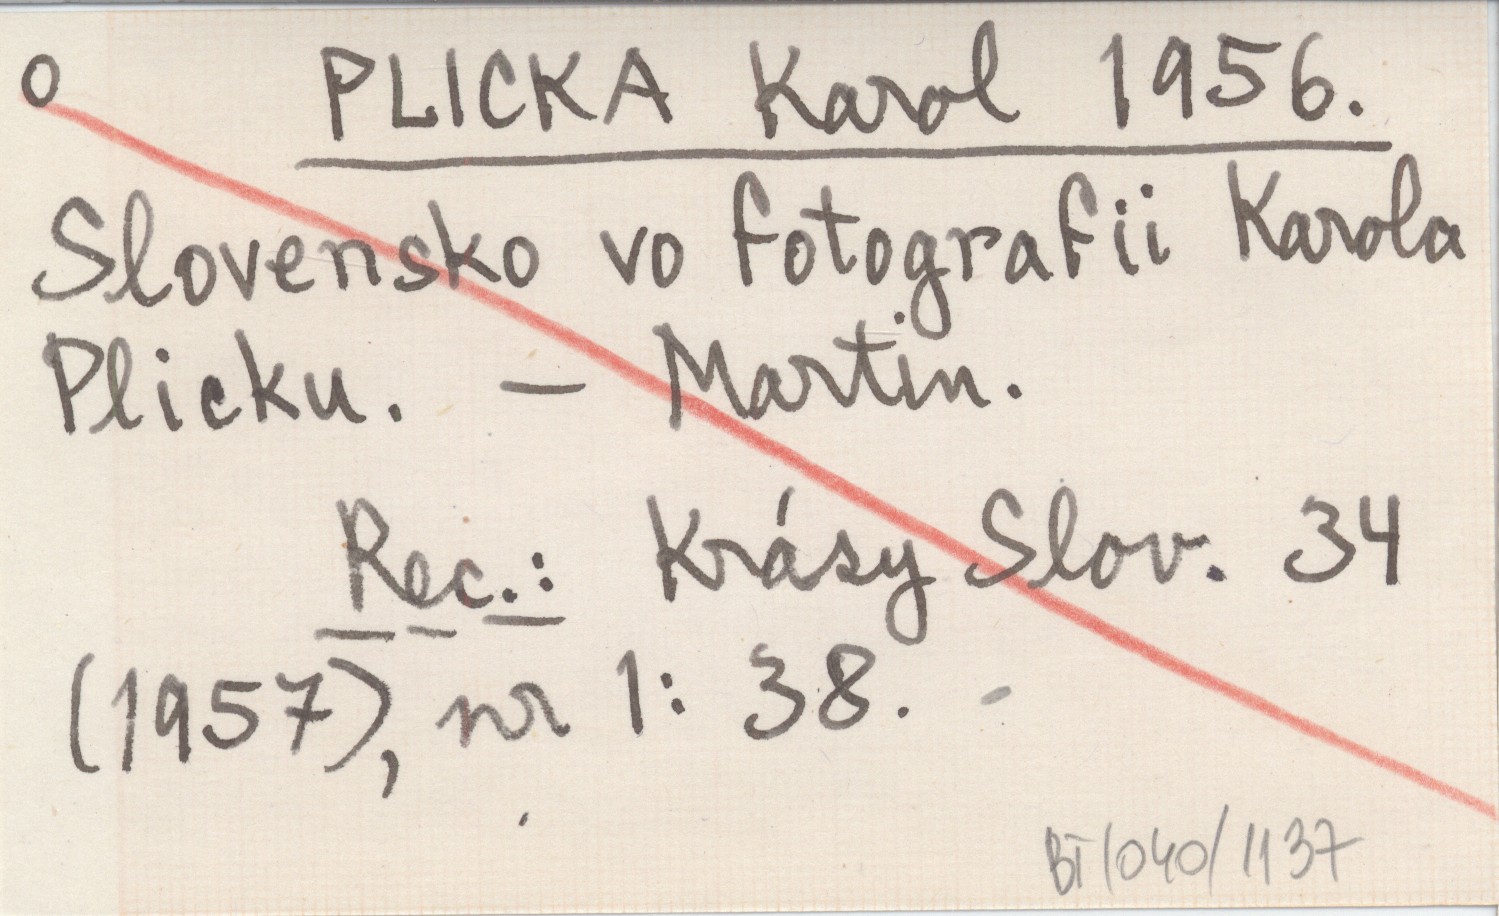 O PLICKA Karol 1956.
Slovensko vo fotografii Karola
Plicku. – Martin.
Rec.: Krásy Slov. 34
(1957), nr 1: 38. -
BT/040/1137